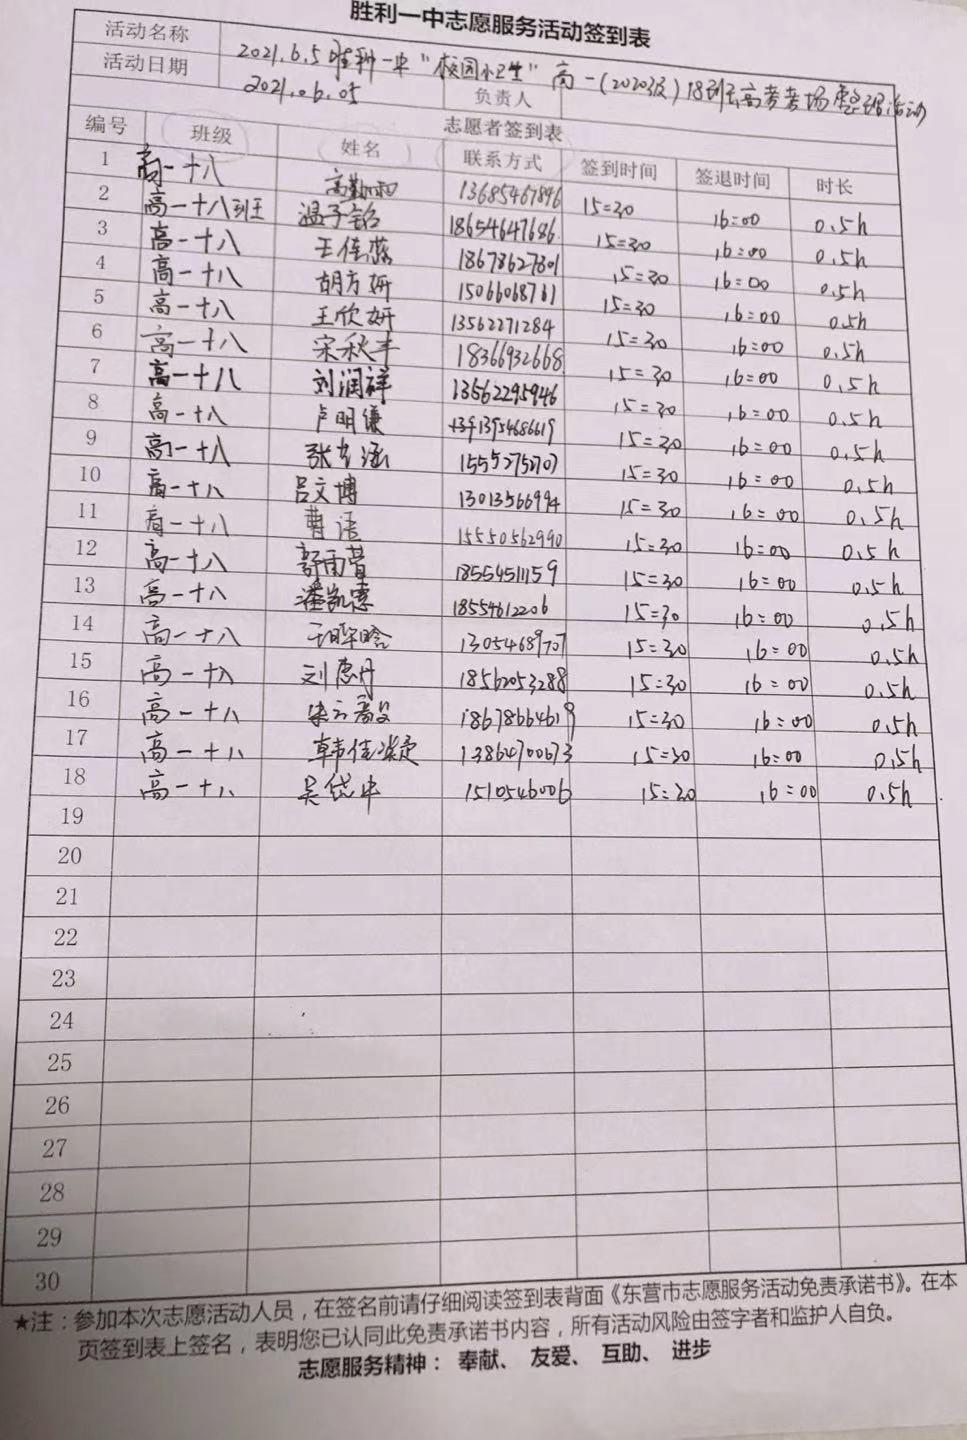 胜利一中志愿服务活动签到表
活动名称 2021.6.5胜利一中“校园小卫生”高一(2020级)18班高考考场整理活动
活动日期 2021.06.05 负责人
志愿者签到表
编号 班级 姓名 联系方式 签到时间 签退时间 时长
1 高一十八 高勤雨 13685467896 15:30 16:00 0.5h
2 高一十八班 温子铭 18654647686 15:30 16:00 0.5h
3 高一十八 王佳蕊 18678627801 15:30 16:00 0.5h
4 高一十八 胡方妍 15:30 16:00 0.5h
5 高一十八 王欣妍 13562271284 15:30 16:00 0.5h
6 高一十八 宋秋丰 18366932668 15:30 16:00 0.5h
7 高一十八 刘润祥 13562295946 15:30 16:00 0.5h
8 高一十八 卢明谦 15:30 16:00 0.5h
9 高一十八 15:30 16:00 0.5h
10 高一十八 吕文博 13013566994 15:30 16:00 0.5h
11 高一十八 曹语 15550562990 15:30 16:00 0.5h
12 高一十八 18554511159 15:30 16:00 0.5h
13 高一十八 潘凯惠 18554612206 15:30 16:00 0.5h
14 高一十八 13054689707 15:30 16:00 0.5h
15 高一十八 刘惠丹 18562053288 15:30 16:00 0.5h
16 高一十八 18678664619 15:30 16:00 0.5h
17 高一十八 韩佳凝 13864700673 15:30 16:00 0.5h
18 高一十八 吴岱中 15:30 16:00 0.5h
19
20
21
22
23
24
25
26
27
28
29
30
★注：参加本次志愿活动人员，在签名前请仔细阅读签到表背面《东营市志愿服务活动免责承诺书》。在本
页签到表上签名，表明您已认同此免责承诺书内容，所有活动风险由签字者和监护人自负。
志愿服务精神：奉献、友爱、互助、进步